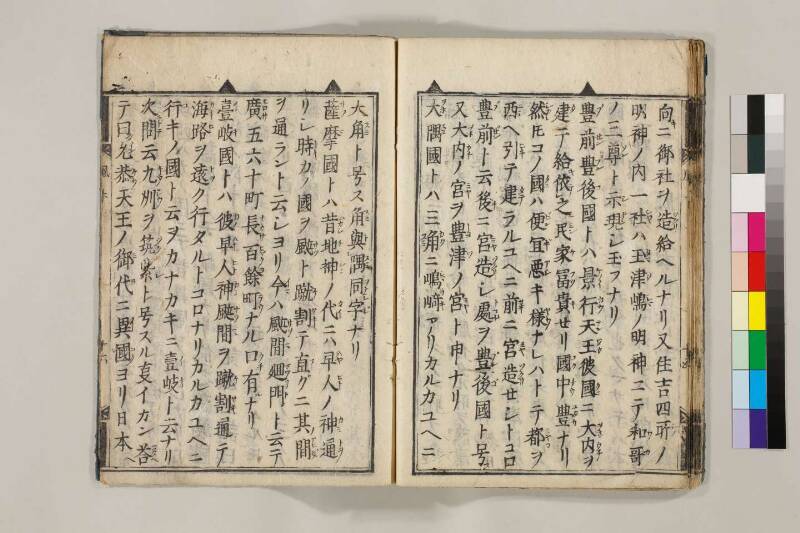 向ニ御社ヲ造給ヘルナリ又住吉四所ノ
明神ノ内一社ハ玉津嶋ノ明神ニテ和哥
ノ三尊ト示現シ玉フナリ
豊前豊後國トハ景行天王彼國ニ大内ヲ
建テ給依之民家冨貴せリ國中豊ナリ
然ㇳモコノ國ハ便宜悪キ様ナレハトテ都ヲ
西ヘ引テ建ラルユヘニ前ニ宮造せシトコロ
豊前ト云後ニ宮造シ處ヲ豊後國ト号
又大内ノ宮ヲ豊津ノ宮ト申ナリ
大隅國トハ三角ニ嶋﨑アリカルカユヘニ
大角ト号ス角與隅同字ナリ
薩摩國トハ昔地神ノ代ニハ早人ノ神通
リシ時カノ國ヲ颰ト蹴割テ直グニ其間
ヲ通ラント云シヨリ今ハ颰間廻門ト云テ
廣五六十町長百餘町ナルロ有ナリ
壹岐國トハ彼早人神颰間ヲ蹴割通テ
海路ヲ遠ク行タルトコロナリカルカユヘニ
行キノ國ト云ヲカナカキニ壹岐ト云ナリ
次問云九州ヲ筑紫ト号スル㕝イカン荅
テ曰允恭天王ノ御代ニ異國ヨリ日本